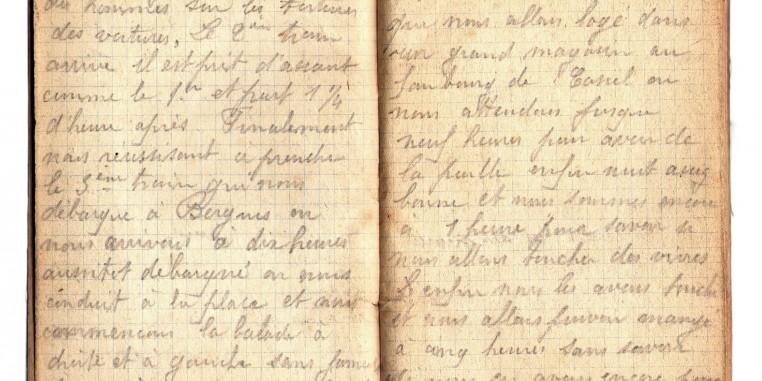 des hommes sur les toitures
des voitures, Le 2ème train
arrive il est prêt d'assaut
comme le 1er et part 1 1/4
d'heure après. Finalement
nous réussisont a prendre
le 3ème train qui nous
débarque à Bergues ou
nous arrivons à dix heures
aussitot débarqué on nous
conduit à la place et nous
commencons la balade à
droite et à gauche sans
que nous allons logé dans
un grand magasin au
faubourg de Cassel ou
nous attendons jusque
neuf heures pour avoir de
la paille enfin nuit assez
bonne et nous sommes encore
à 1 heure pour savoir si
nous allons toucher des vivres
enfin nous les avons touché
et nous allons pouvoir mangé
à cinq heures sans savoir
en avons encore